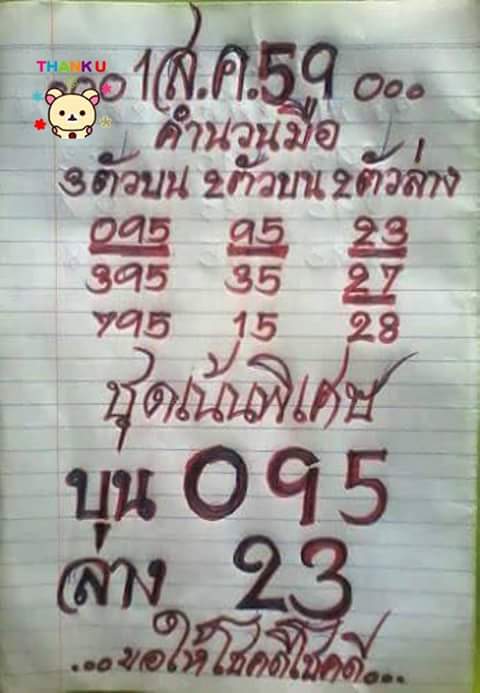 THANK U
ooo 1 ส.ค.59 ooo...
คำนวนมือ
3ตัวบน 2ตัวบน 2ตัวล่าง
095 95 23
395 35 27
795 15 28
ชุดเน้นพิเศษ
บน 095
ล่าง 23
...ขอให้โชคดีโชคดี...